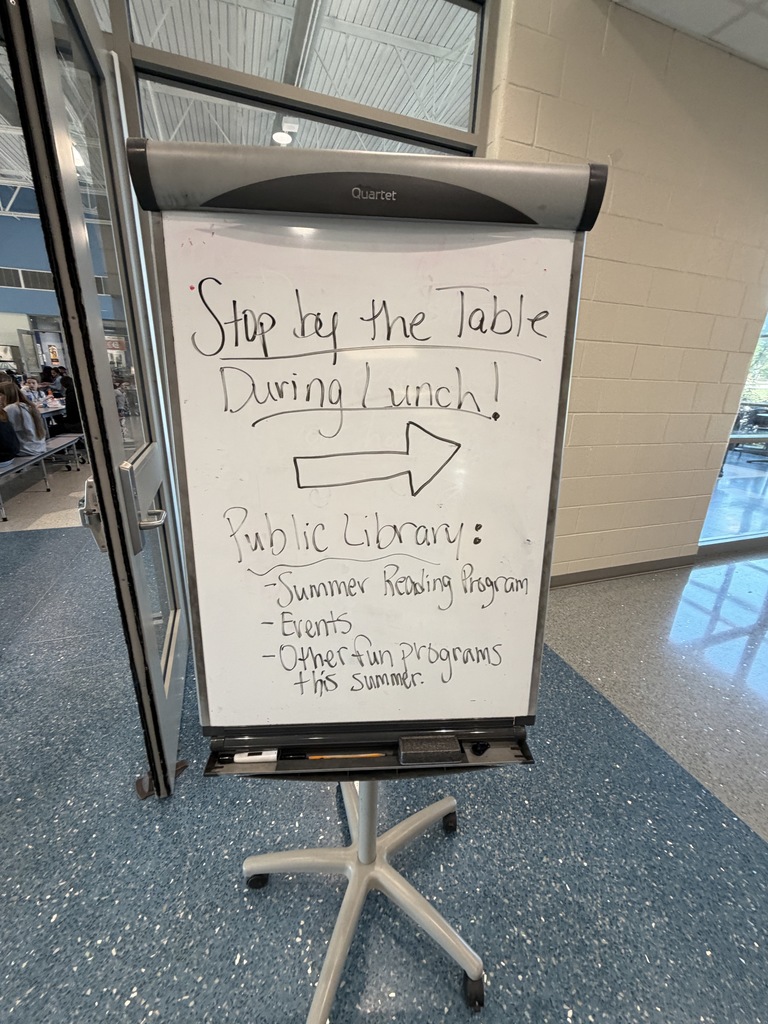 Quartet
Stop by the Table
During Lunch!
Public Library:
- Summer Reading Program
- Events
- Other fun programs
this summer.